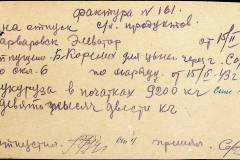 фактура № 161.
на отпуск с/х. продуктов.
Варваровск Элеватор от 15/II
отпущено Б. Корении для цены через г.
по скл. 6 по наряду. от 15/II-43 г
кукуруза в початках 9200 кг
девять тысяч двести кг
отпустил принял